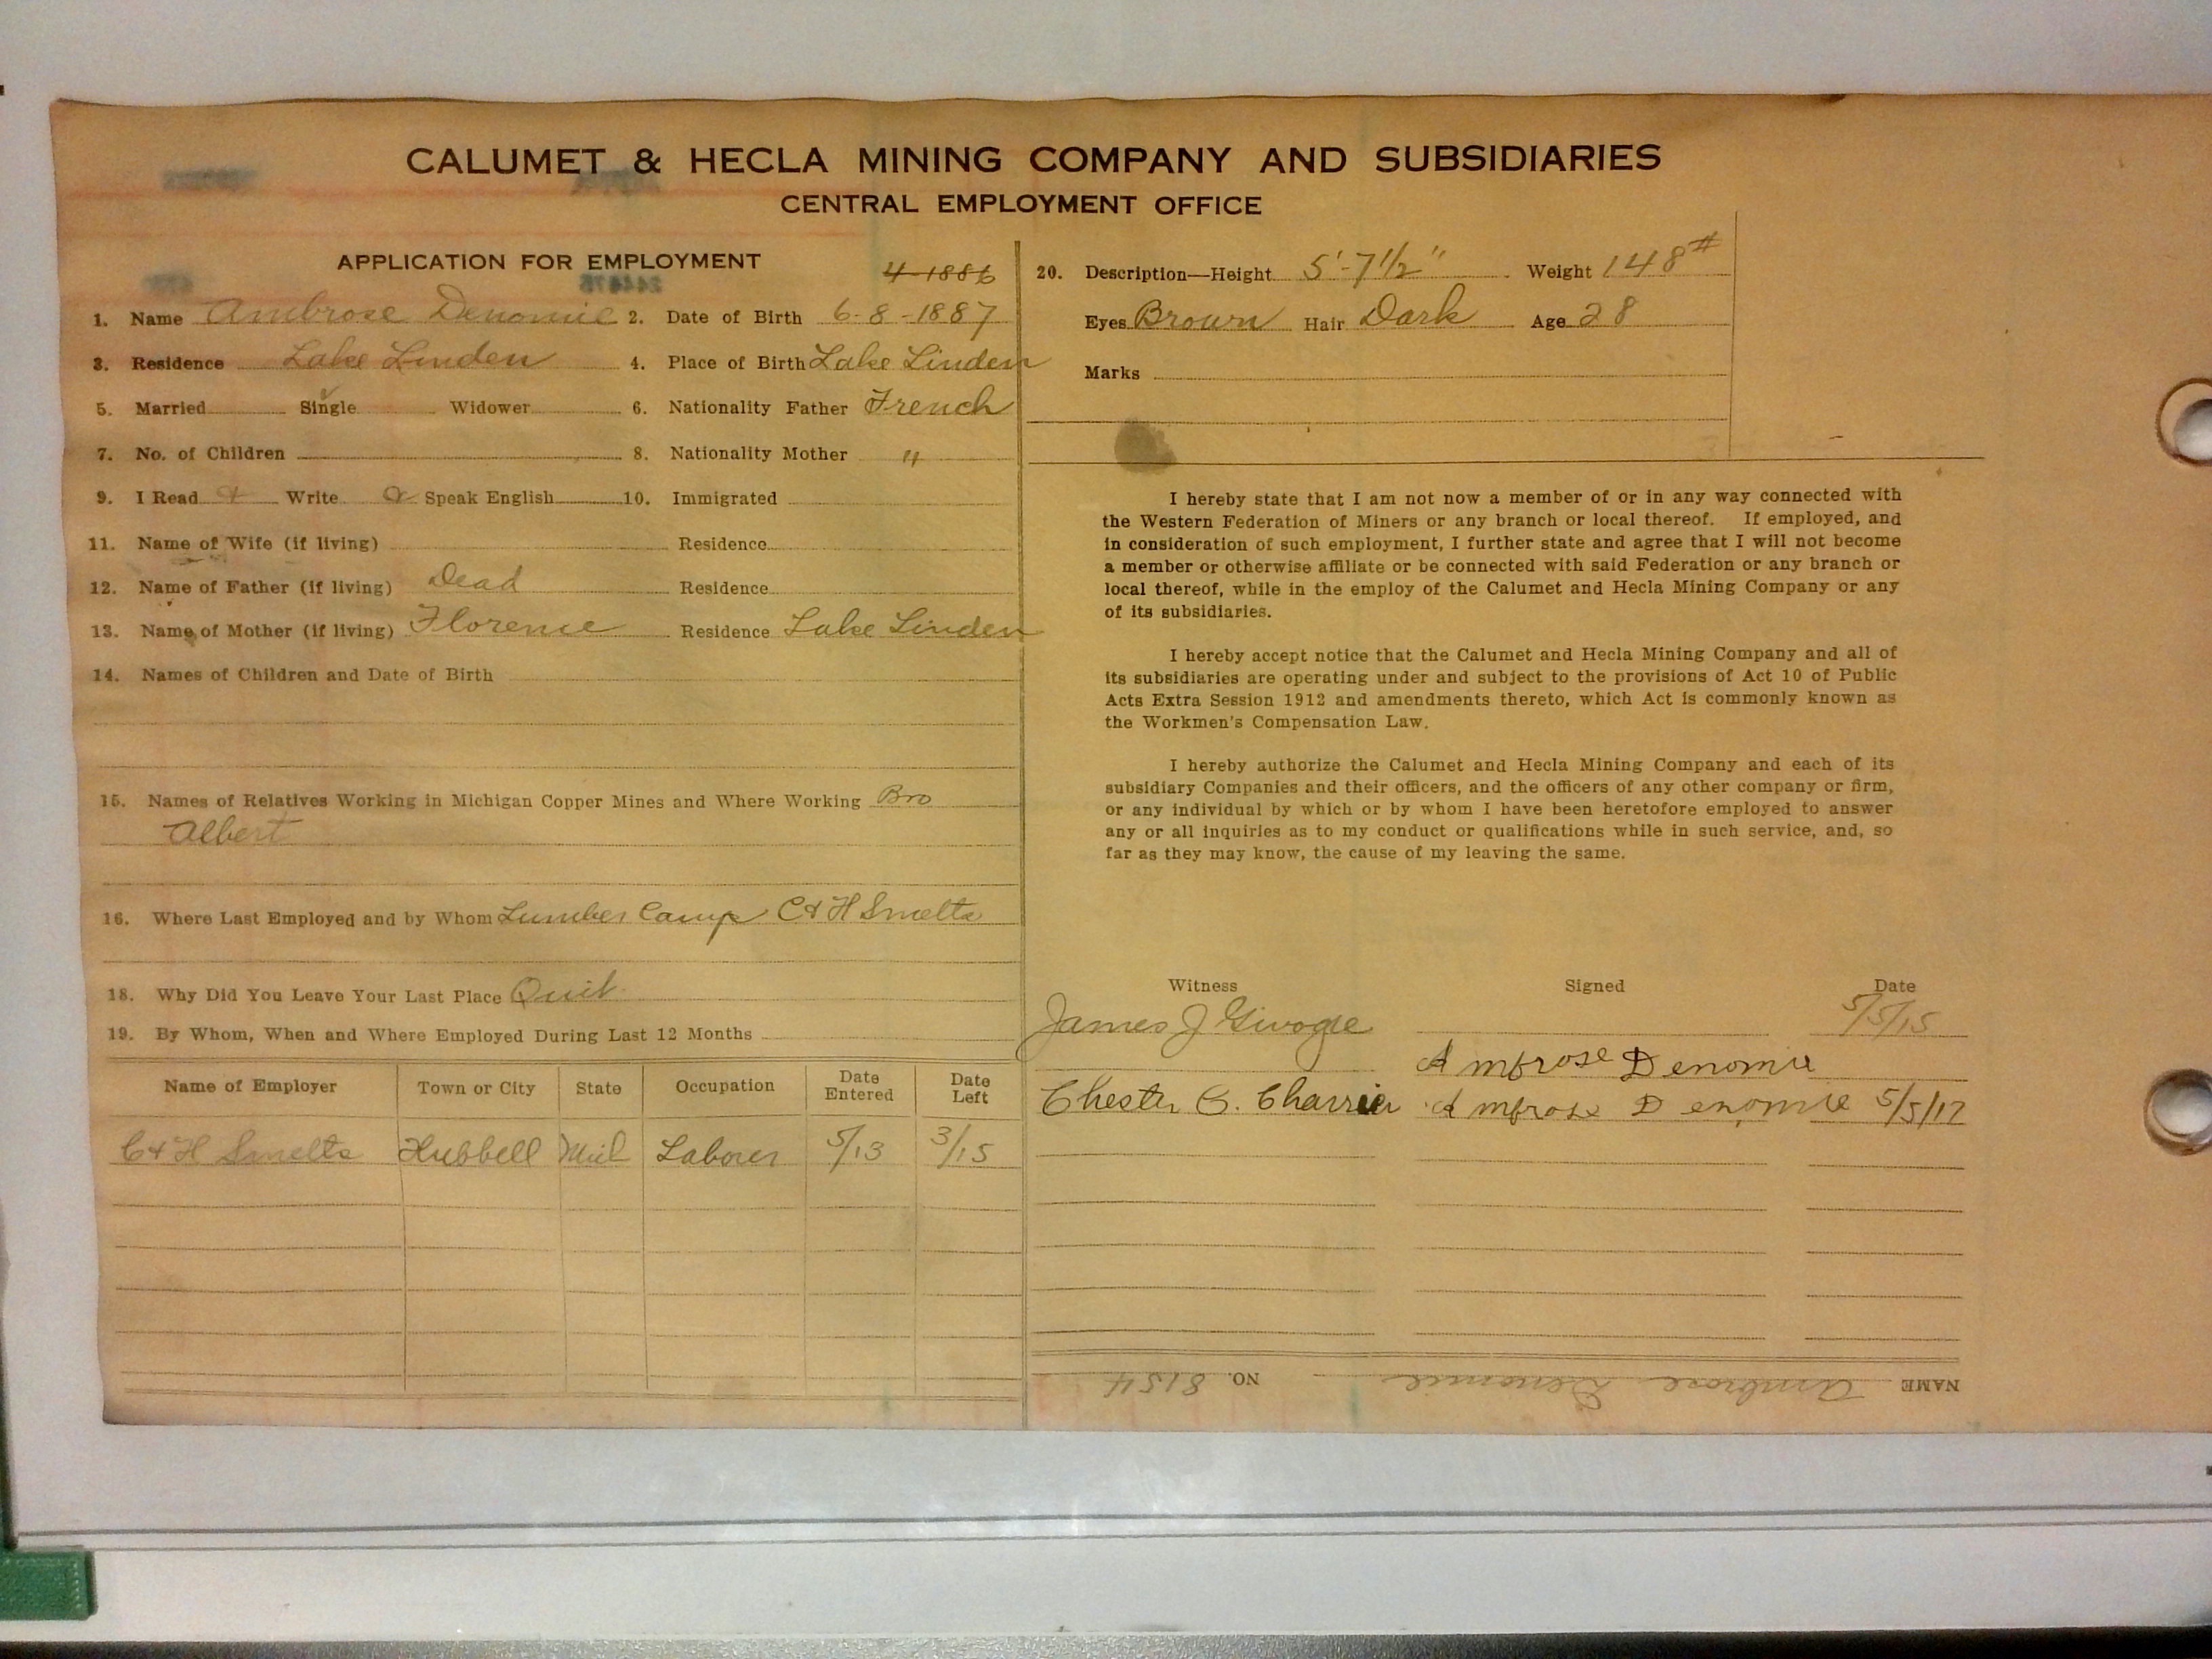 CALUMET & HECLA MINING COMPANY AND SUBSIDIARIES
CENTRAL EMPLOYMENT OFFICE
APPLICATION FOR EMPLOYMENT
4-1886
1. Name Ambrose Denomie 2. Date of Birth 6-8-1887
3. Residence Lake Linden 4. Place of Birth Lake Linden
5. Married Single Widower 6. Nationality Father French
7. No. of Children 8. Nationality Mother "
9. I Read & Write & Speak English 10. Immigrated
11. Name of Wife (if living) Residence
12. Name of Father (if living) Dead Residence
13. Name of Mother (if living) Florence Residence Lake Linden
14. Names of Children and Date of Birth
15. Names of Relatives Working in Michigan Copper Mines and Where Working Bro
Albert
16. Where Last Employed and by Whom Lumber Camp C & H Smelts
18. Why Did You Leave Your Last Place Quit
19. By Whom, When and Where Employed During Last 12 Months
Name of Employer Town or City State Occupation Date Entered Date Left
C & H Smelts Hubbell Mich Laborer 5/13 3/15
20. Description—Height 5'-7 1/2" Weight 148#
Eyes Brown Hair Dark Age 28
Marks
I hereby state that I am not now a member of or in any way connected with
the Western Federation of Miners or any branch or local thereof. If employed, and
in consideration of such employment, I further state and agree that I will not become
a member or otherwise affiliate or be connected with said Federation or any branch or
local thereof, while in the employ of the Calumet and Hecla Mining Company or any
of its subsidiaries.
I hereby accept notice that the Calumet and Hecla Mining Company and all of
its subsidiaries are operating under and subject to the provisions of Act 10 of Public
Acts Extra Session 1912 and amendments thereto, which Act is commonly known as
the Workmen's Compensation Law.
I hereby authorize the Calumet and Hecla Mining Company and each of its
subsidiary Companies and their officers, and the officers of any other company or firm,
or any individual by which or by whom I have been heretofore employed to answer
any or all inquiries as to my conduct or qualifications while in such service, and, so
far as they may know, the cause of my leaving the same.
Witness Signed Date
James J 5/5/15
Ambrose Denomie
Chester Ambrose Denomie 5/5/17
NAME Ambrose Denomie NO. 8154